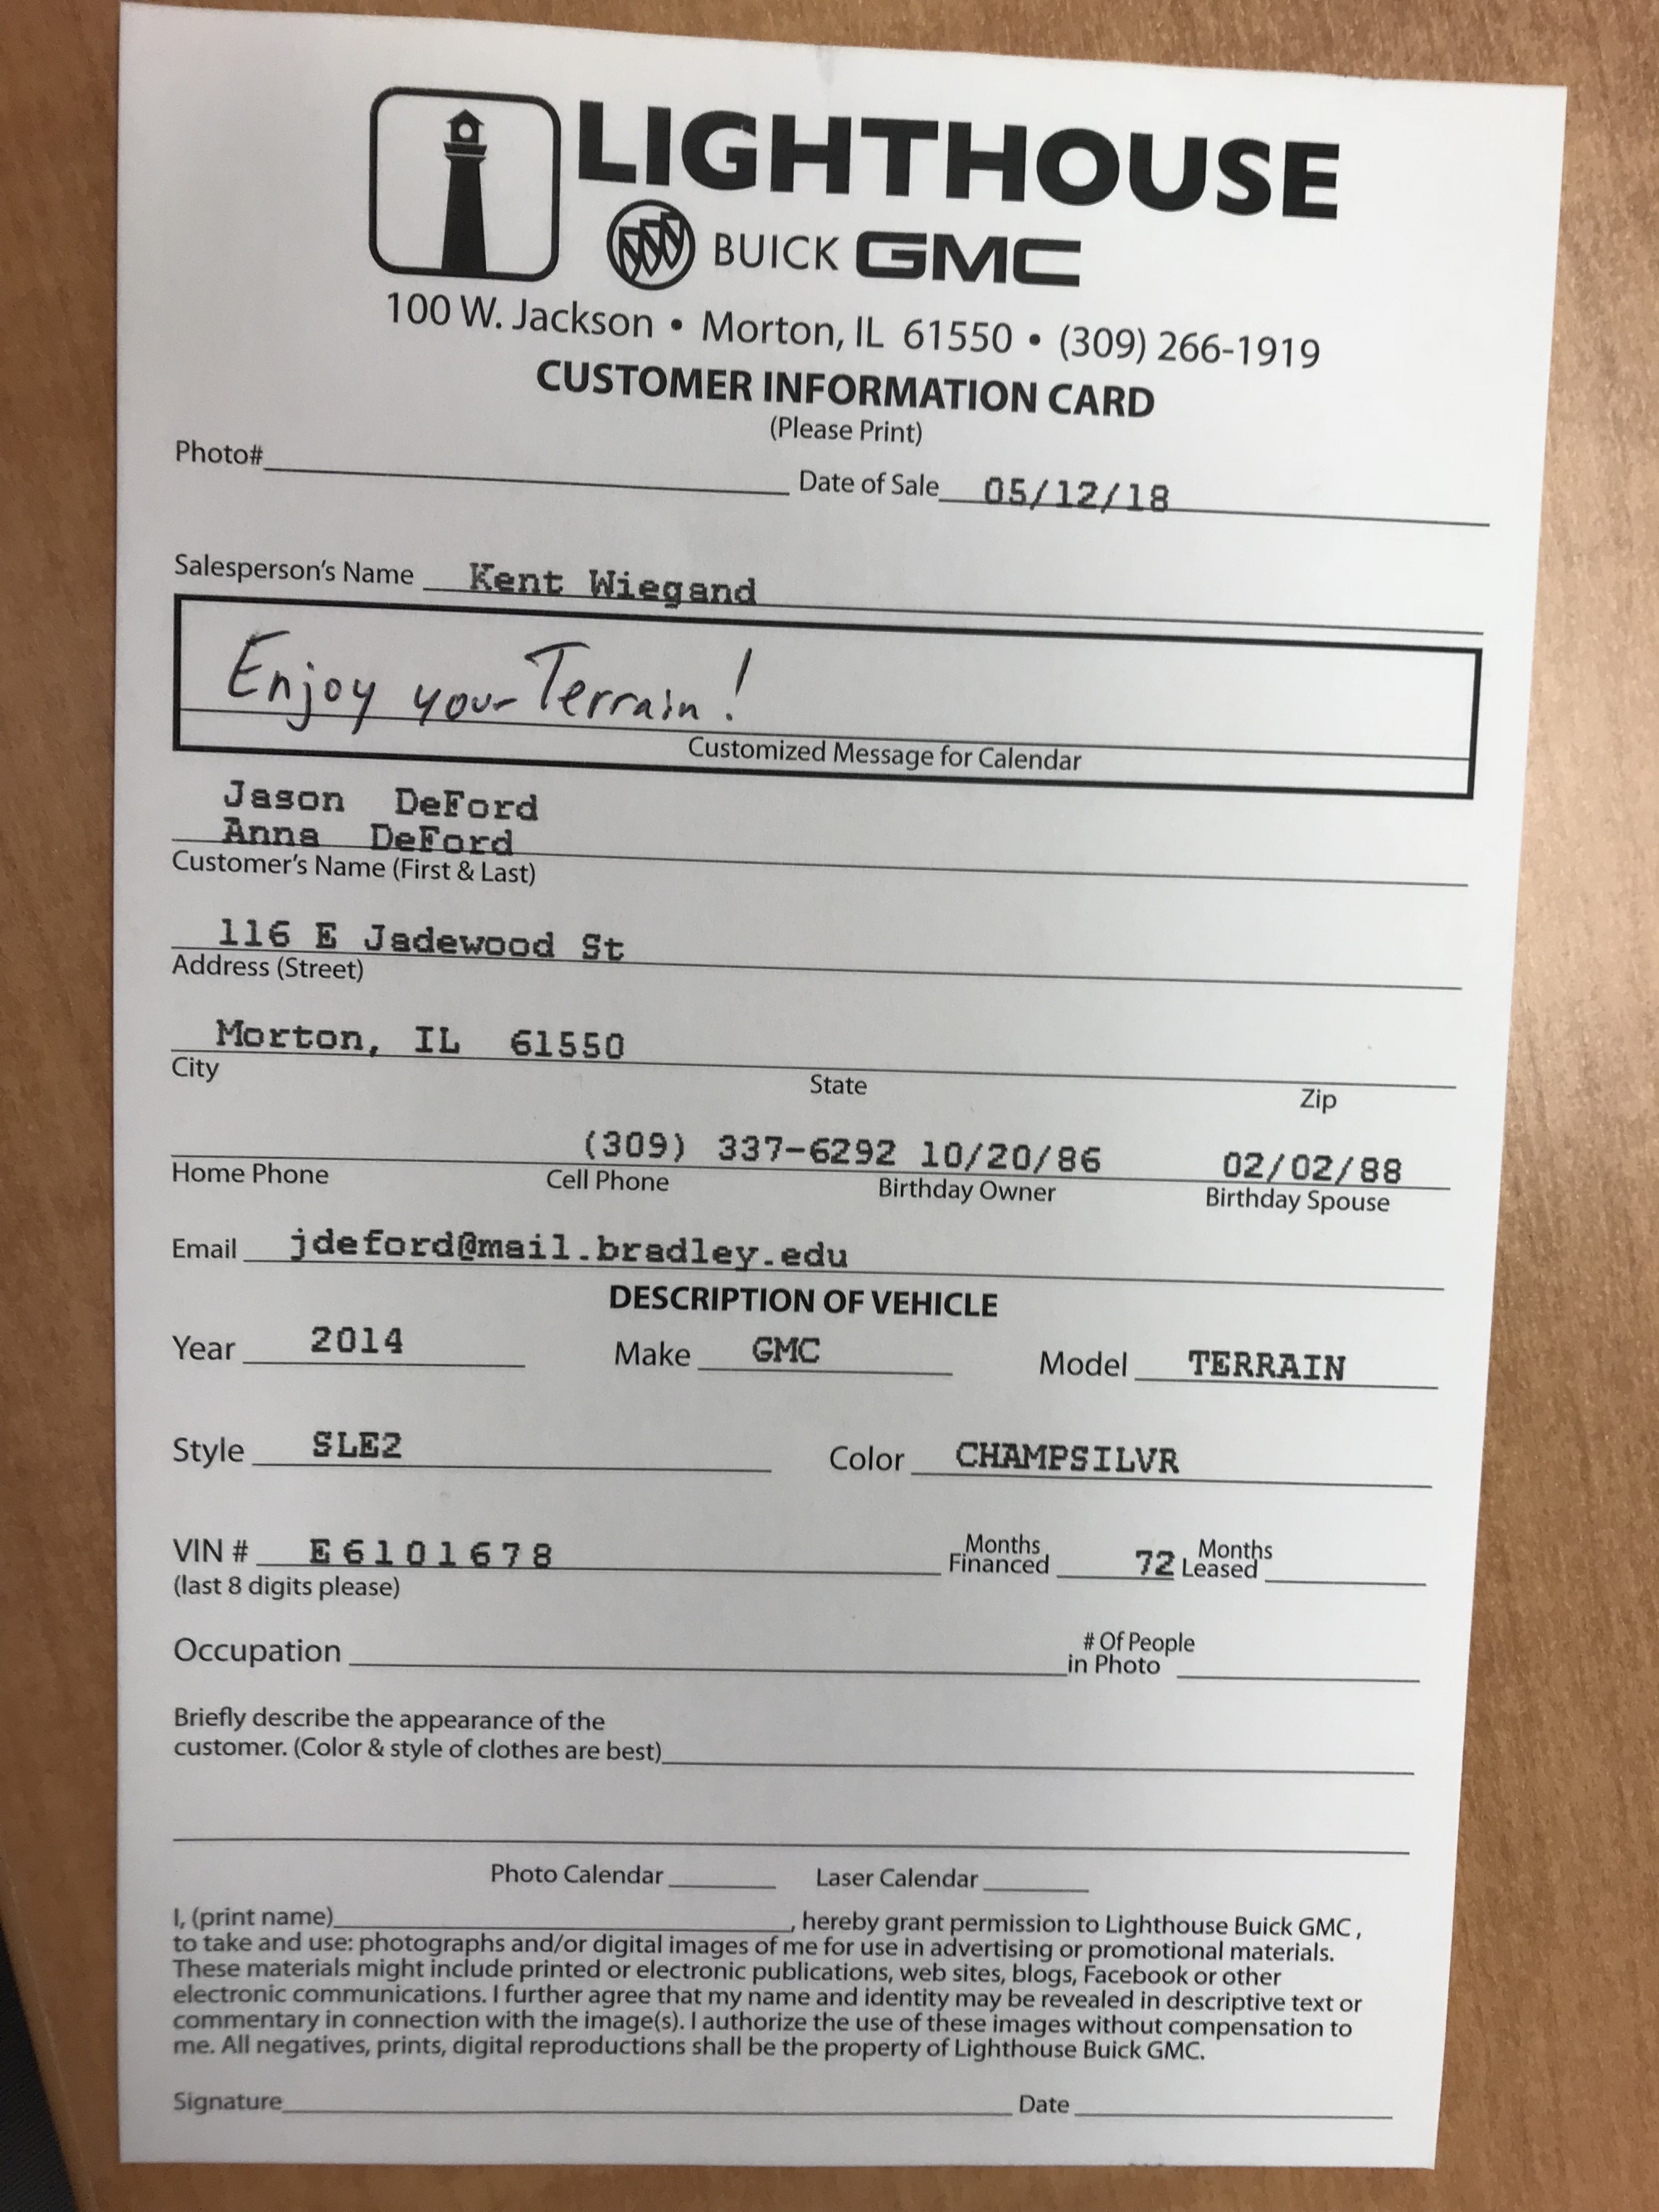 LIGHTHOUSE
BUICK GMC
100 W. Jackson • Morton, IL 61550 • (309) 266-1919
CUSTOMER INFORMATION CARD
(Please Print)
Photo# Date of Sale 05/12/18
Salesperson's Name Kent Wiegand
Enjoy your Terrain!
Customized Message for Calendar
Jason DeFord
Anna DeFord
Customer's Name (First & Last)
116 E Jadewood St
Address (Street)
Morton, IL 61550
City State Zip
(309) 337-6292 10/20/86 02/02/88
Home Phone Cell Phone Birthday Owner Birthday Spouse
Email jdeford@mail.bradley.edu
DESCRIPTION OF VEHICLE
Year 2014 Make GMC Model TERRAIN
Style SLE2 Color CHAMPSILVR
VIN # E6101678 Months Financed 72 Months Leased
(last 8 digits please)
Occupation # Of People in Photo
Briefly describe the appearance of the
customer. (Color & style of clothes are best)
Photo Calendar Laser Calendar
I, (print name) , hereby grant permission to Lighthouse Buick GMC,
to take and use: photographs and/or digital images of me for use in advertising or promotional materials.
These materials might include printed or electronic publications, web sites, blogs, Facebook or other
electronic communications. I further agree that my name and identity may be revealed in descriptive text or
commentary in connection with the image(s). I authorize the use of these images without compensation to
me. All negatives, prints, digital reproductions shall be the property of Lighthouse Buick GMC.
Signature Date